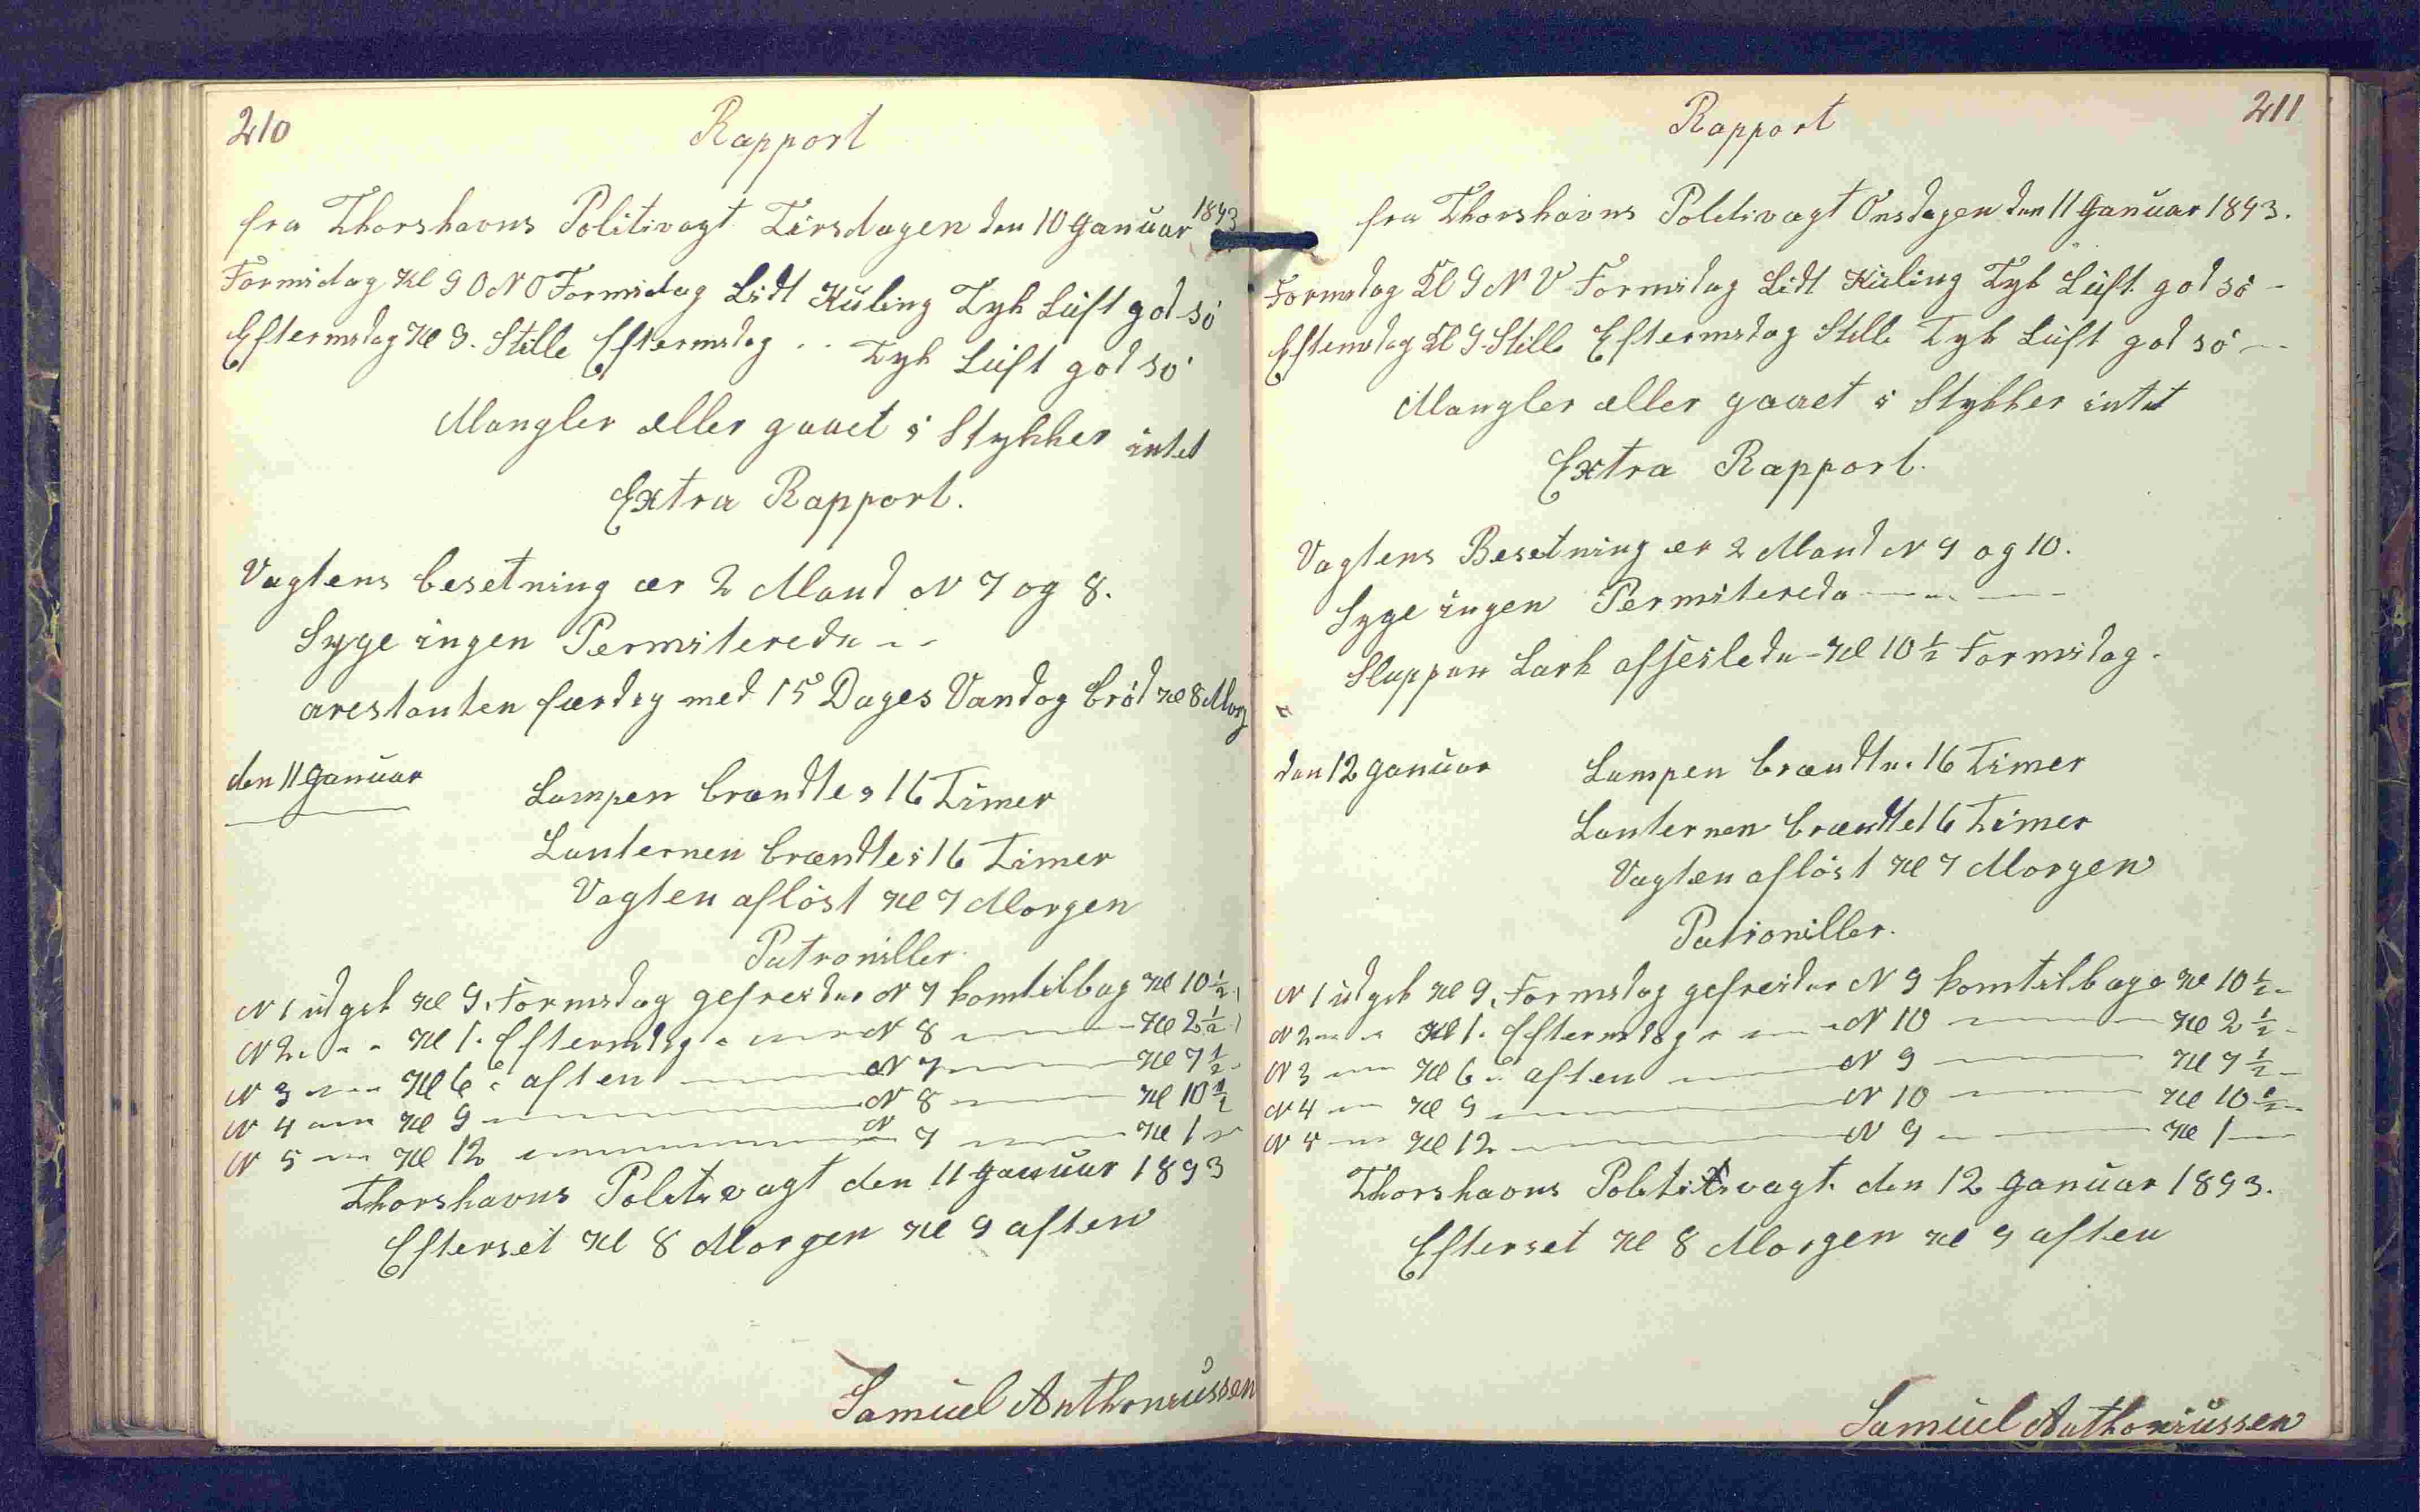 210
Rapport
fra Thorshavns Politivagt Tirsdagen den 10 Januar 1893
Formidag Kl 9 ONO Formidag Lidt Kuling Tyk Luft god sö
Eftermidag Kl 9. Stille Eftermidag . . Tyk Luft god sö
Mangler æller gaaet i Stykker intet
Extra Rapport.
Vagtens besetning ær 2 Mand N 7 og 8.
Syge ingen Permiterede - -
arestanten færdig med 15 Dages Vand og bröd Kl 8 Morg
den 11 Januar
Lampen brændte 16 Timer
Lanternen brændte 16 Timer
Vagten aflöst Kl 7 Morgen
Patroniller
N 1 udgik Kl 9. Formidag gefreider N 7 kom tilbag Kl 10 1/2
N 2 - - - Kl 1. Eftermidg - — N 8 — Kl 2 1/2
N 3 — Kl 6 - aften — N 7 — Kl 7 1/2
N 4 — Kl 9 — N 8 — Kl 10 1/2
N 5 — Kl 12 — N 7 — Kl 1 -
Thorshavns Politivagt den 11 Januar 1893
Efterset Kl 8 Morgen Kl 9 aften
Samuel Anthoniussen
211
Rapport
fra Thorshavns Politivagt Onsdagen den 11 Januar 1893.
Formidag Kl 9 N V Formidag Lidt Kuling Tyk Luft god sö -
Eftemidag Kl 9 Stille Eftermidag Stille Tyk Luft god sö - -
Mangler æller gaaet i Stykker intet
Extra Rapport.
Vagtens Besetning er 2 Mand N 9 og 10.
Syge ingen Permiterede — - —
Sluppen Lark afseilede - Kl 10 1/2 Formidag -
den 12 Januar
Lampen brændte 16 Timer
Lanternen brændte 16 Timer
Vagten aflöst Kl 7 Morgen
Patroniller.
N 1 udgik Kl 9. Formidag gefreider N 9 kom tilbage Kl 10 1/2 -
N 2 - - - Kl 1. Eftermidg - — N 10 — Kl 2 1/2 -
N 3 — Kl 6 - aften — N 9 — Kl 7 1/2 -
N 4 — Kl 9 — N 10 — Kl 10 1/2 -
N 5 — Kl 12 — N 9 — Kl 1 —
Thorshavns Politivagt. den 12 Januar 1893.
Efterset Kl 8 Morgen Kl 9 aften
Samuel Anthoniussen